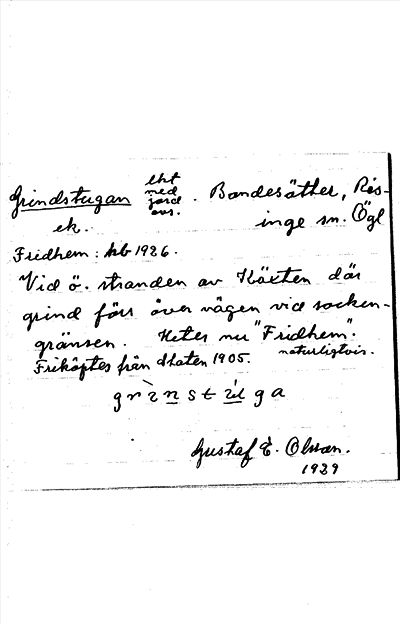 Grindstugan lht med jord avs. Bondesätter, Ris-
ek. inge sn. Ögl
Fridhem: kb 1926.
Vid ö. stranden av Käxten där
grind förr över vägen vid socken-
gränsen. Heter nu "Fridhem".
naturligtvis.
Friköptes från staten 1905.
Gustaf E. Olsson.
1929